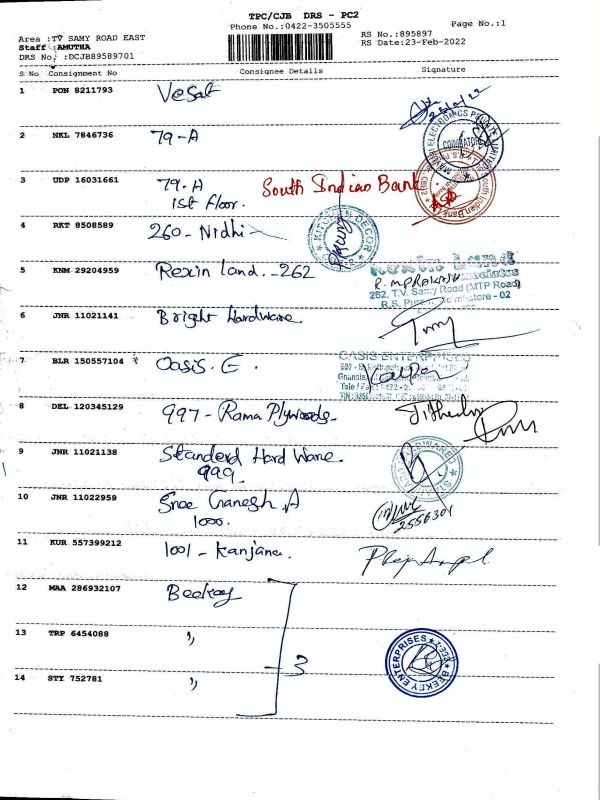 TPC/CJB DRS - PC2
Phone No.:0422-3505555
Page No.:1
Area :TV SAMY ROAD EAST
Staff :AMUTHA
DRS No. :DCJB89589701
RS No.:895897
RS Date:23-Feb-2022
S No Consignment No Consignee Details Signature
1 PON 8211793
2 NKL 7846736 79-A
COIMBATORE
3 UDP 16031661 79.A South Indian Bank
1st floor.
South Indian Bank
4 RKT 8508589 260-Nidhi
KITCHEN DECOR
5 KNM 29204959 Rexin land.-262
Rexin Land
R. M PRAKASH
262, T.V. Samy Road (MTP Road)
6 JNR 11021141 Bright Hardware.
7 BLR 150557104 Oasis. E.
OASIS ENTERPRISES
8 DEL 120345129 997-Rama Plywoods
9 JNR 11021138 Standerd Hard Ware.
999.
10 JNR 11022959 Sree Ganesh A
1000.
2556301
11 KUR 557399212 1001-Kanjana.
12 MAA 286932107 Beekay
13 TRP 6454088 ,,
3
BEEKEY ENTERPRISES
14 STY 752781 ,,